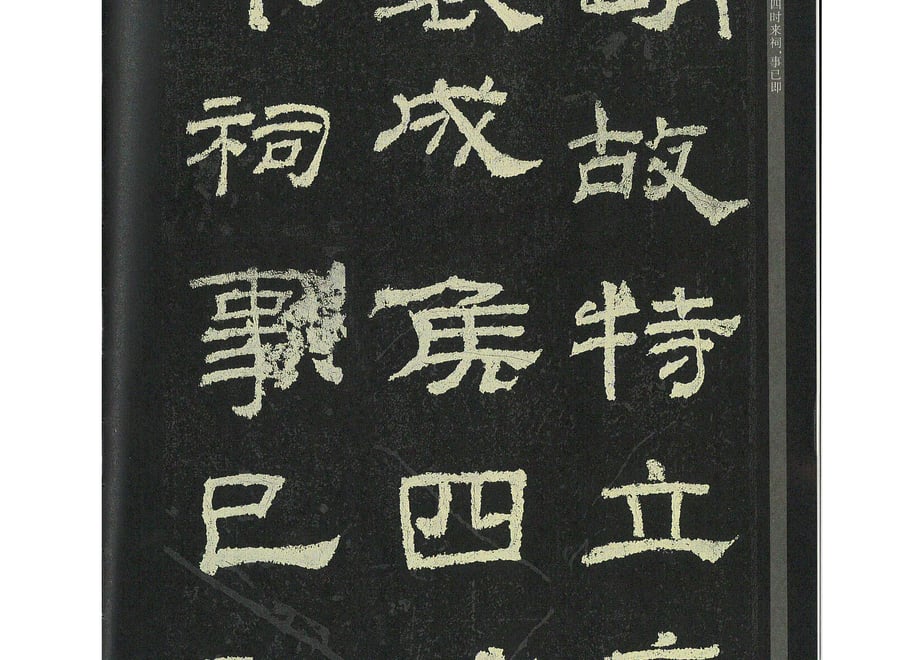 四时来祠，事已即
故特立
成侯四
祠事已